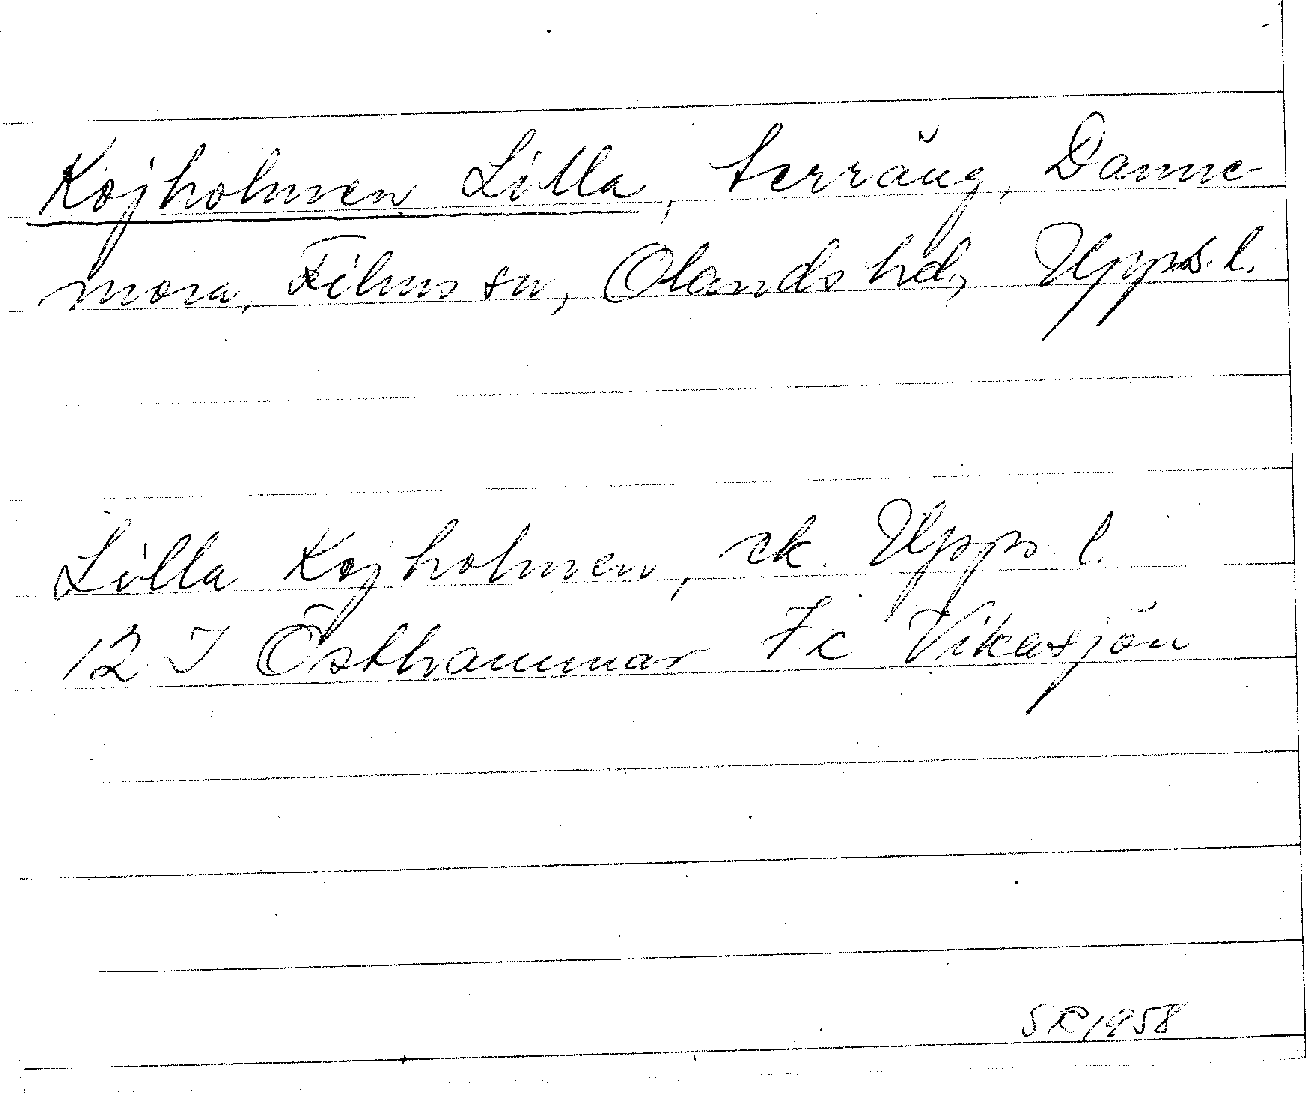 Kojholmen Lilla, terräng, Danne-
mora, Films sn, Olands hd, Upps. l.
Lilla Kojholmen, ek. Upps l.
12 I Östhammar 7c Vikasjön
SR 1958